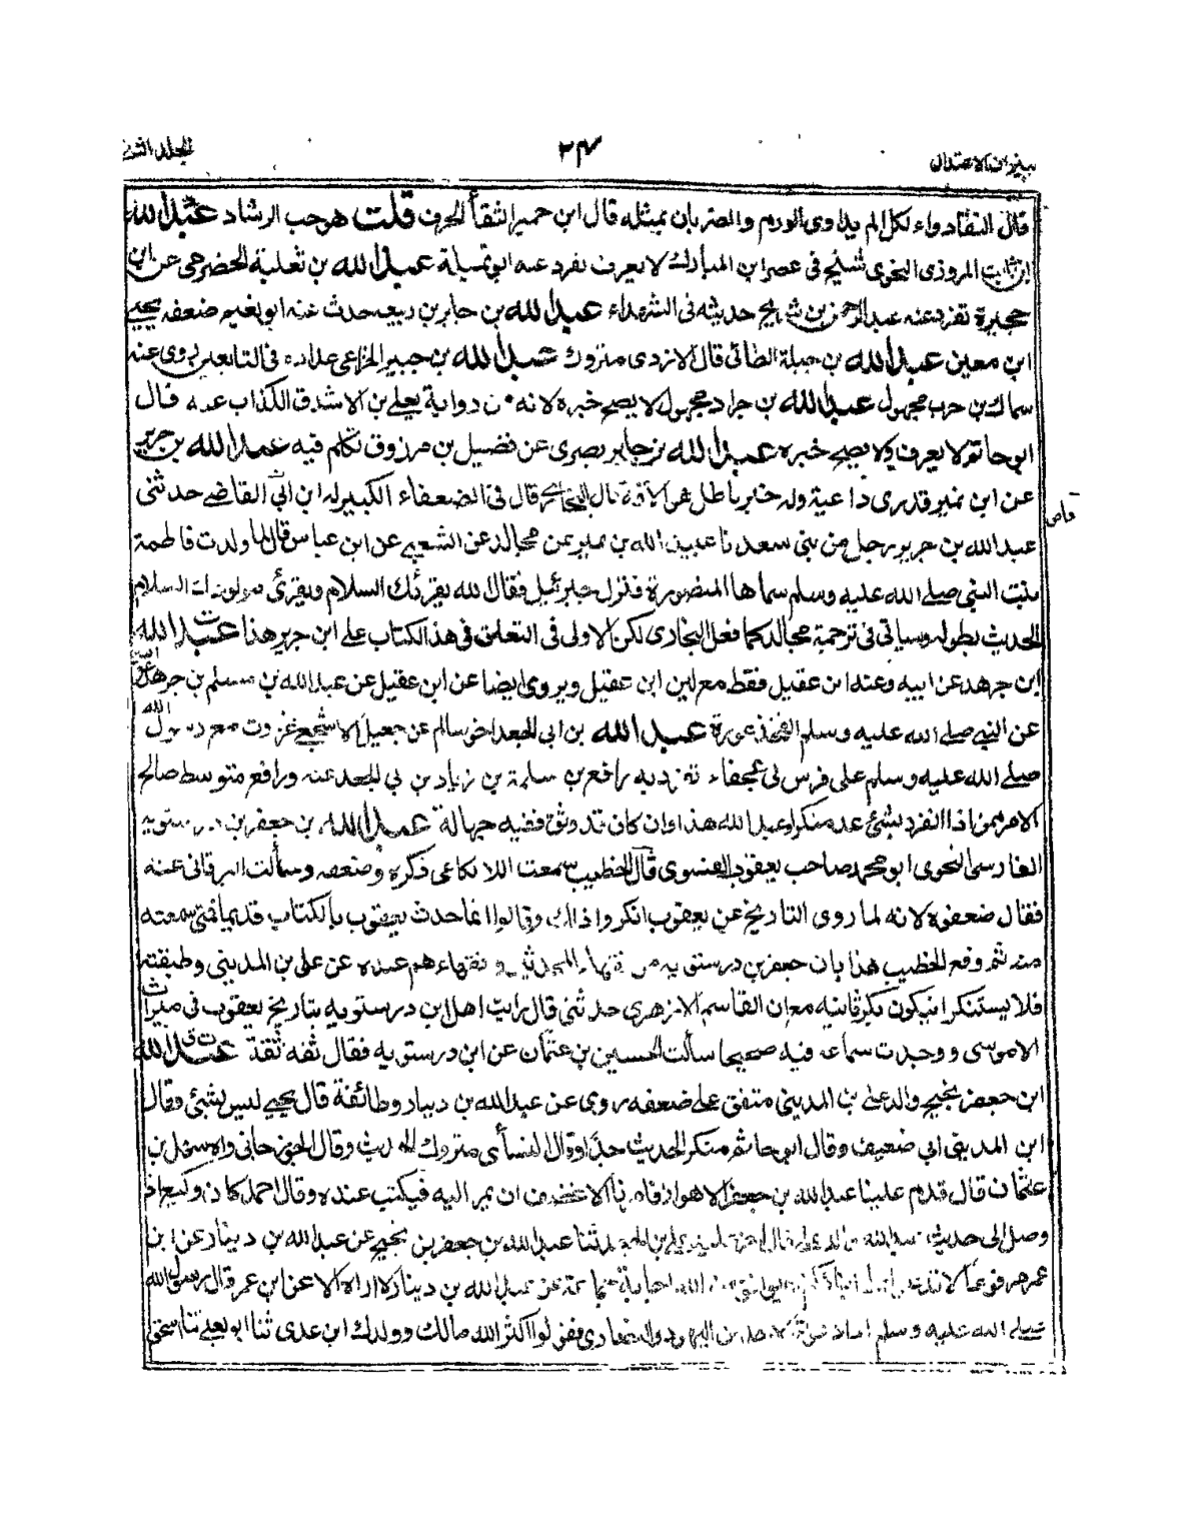 ميزان الاعتدال ٢٤ الجلد الثانى
قال الثفاء دواء لكل الم يداوى الورم والضربان بمثله قال ابن حمير الثفأ الحرف قلت هو حب الرشاد عبد الله
ابن ثابت المروزى النحوى شيخ فى عصر ابن المبارك لا يعرف تفرد عنه ابو تميلة عبد الله بن ثعلبة الحضرمى عن ابن
حجيرة تفرد عنه عبد الرحمن بن شريح حديثه فى الشهداء عبد الله بن جابر بن ربيعه حدث عنه ابو نعيم ضعفه يحيى
ابن معين عبد الله بن جبلة الطائى قال الازدى متروك عبد الله بن جبير الخزاعى عداده فى التابعين روى عنه
سماك بن حرب مجهول عبد الله بن جراد مجهول لا يصح خبره لانه من رواية يعلى بن الاشدق الكذاب عنه قال
ابو حاتم لا يعرف ولا يصح خبره عبد الله بن جابر بصرى عن فضيل بن مرزوق تكلم فيه عبد الله بن جرير
عن ابن نمير قدرى داعية وله خبر باطل هو الآفة قال البخارى قال فى الضعفاء الكبير له ابن ابى القاضى حدثنى
عبد الله بن جرير رجل من بنى سعد نا عبد الله بن نمير عن مجالد عن الشعبى عن ابن عباس قال لما ولدت فاطمة
بنت النبى صلى الله عليه وسلم سماها المنصورة فنزل جبرئيل فقال الله يقرئك السلام ويقرئ مولودك السلام
الحديث بطوله وسياتى فى ترجمة مجالد كما فعل البخارى لكن الاولى فى التعلق فى هذا الكتاب على ابن جرير هذا عبد الله
ابن جرهد عن ابيه وعنه ابن عقيل فقط معولين ابن عقيل ويروى ايضا عن ابن عقيل عن عبد الله بن مسلم بن جرهد
عن النبى صلى الله عليه وسلم الفخذ عورة عبد الله بن ابى الجعد اخو سالم عن جعيل الاشجعى غزوت مع رسول الله
صلى الله عليه وسلم على فرس لى عجفاء تفرد به رافع بن سلمة بن زياد بن ابى الجعد عنه ورافع متوسط صالح
الامر ممن اذا انفرد بشئ عد منكرا وعبد الله هذا وان كان قد وثق ففيه جهالة عبد الله بن جعفر بن درستويه
الفارسى النحوى ابو محمد صاحب يعقوب الفسوى قال الخطيب سمعت اللالكائى ذكره وضعفه وسألت البرقانى عنه
فقال ضعفوه لانه لما روى التاريخ عن يعقوب انكروا ذلك وقالوا انما حدث يعقوب بالكتاب قديما فمتى سمعته
منه ثم دفع الخطيب هذا بان جعفر بن درستويه من فقهاء المحدثين وفقهاءهم عنده عن على بن المدينى وطبقته
فلا يستنكر ان يكون بكر فابنه مع ان القاسم الازهرى حدثنى قال رايت اصل ابن درستويه بتاريخ يعقوب فى ميراث
الابنوسى ووجدت سماعه فيه صحيحا سألت الحسين بن عثمان عن ابن درستويه فقال ثقة ثقة عبد الله
ابن جعفر بن نجيح والد على بن المدينى متفق على ضعفه روى عن عبد الله بن دينار وطائفة قال يحيى ليس بشئ وقال
ابن المدينى ابى ضعيف وقال ابو حاتم منكر الحديث جدا وقال النسائى متروك الحديث وقال الجوزجانى واه سهل بن
عثمان قال قدم علينا عبد الله بن جعفر الاهواز فان يمر اليه فيكتب عنده وقال احمد كان وكيع اذا
وصل الى حديث عبد الله حدثنا عبد الله بن جعفر بن نجيح عن عبد الله بن دينار عن ابن
عمر مرفوعا عن عبد الله بن دينار لا اراه الا عن ابن عمر قال رسول الله
صلى الله عليه وسلم من اليهود والنصارى فقولوا اكثر الله مالك وولدك ابن عدى ثنا ابو يعلى ثنا اسحق